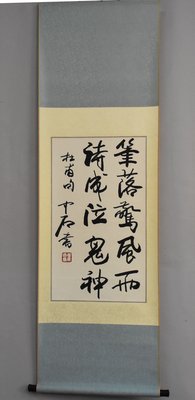 筆落驚風雨
詩成泣鬼神
杜甫句
書